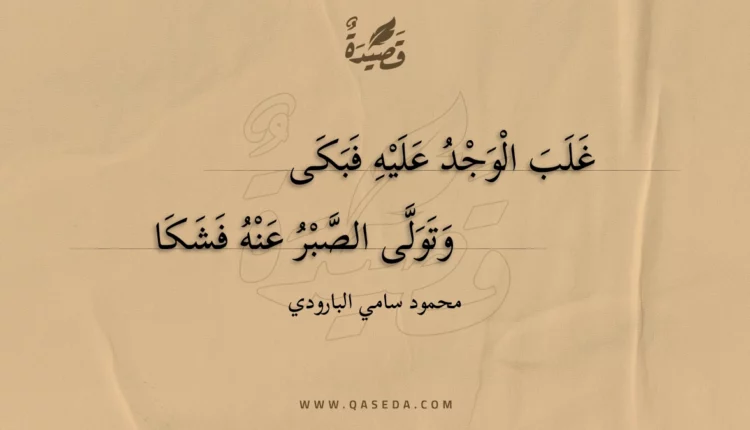 قَصِيدَةٌ
غَلَبَ الْوَجْدُ عَلَيْهِ فَبَكَى
وَتَوَلَّى الصَّبْرُ عَنْهُ فَشَكَا
محمود سامي البارودي
WWW.QASEDA.COM